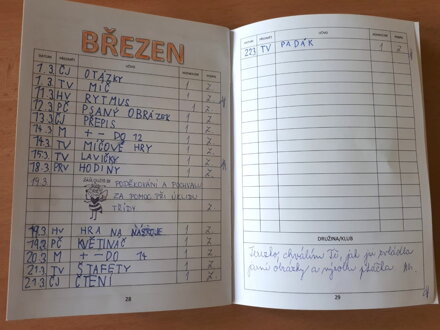 BŘEZEN
DATUM PŘEDMĚT UČIVO HODNOCENÍ PODPIS
1.3. ČJ OTÁZKY 1 Z
1.3. TV MÍČ 1 Z
11.3 HV RYTMUS 1 Z
12.3 PČ PSANÝ OBRÁZEK 1 Z
13.3 ČJ PŘEPIS 1 Z
14.3. M + - DO 12 1 Z
14.3. TV MÍČOVÉ HRY 1 Z
15.3. TV LAVIČKY 1 Z
18.3. PRV HODINY 1 Z
19.3.
PODĚKOVÁNÍ A POCHVALU
ZA POMOC PŘI ÚKLIDU
TŘÍDY Z
19.3 HV HRA NA NÁSTROJE 1 Z
19.3. PČ KVĚTINÁČ 1 Z
20.3. M + - DO 14 1 Z
21.3 TV ŠTAFETY 1 Z
21.3 ČJ ČTENÍ 1 Z
28
DATUM PŘEDMĚT UČIVO HODNOCENÍ PODPIS
22.3 TV PADÁK 1 Z
DRUŽINA/KLUB
chválím Tě, jak jsi zvládla
obrázky a výrobu
29